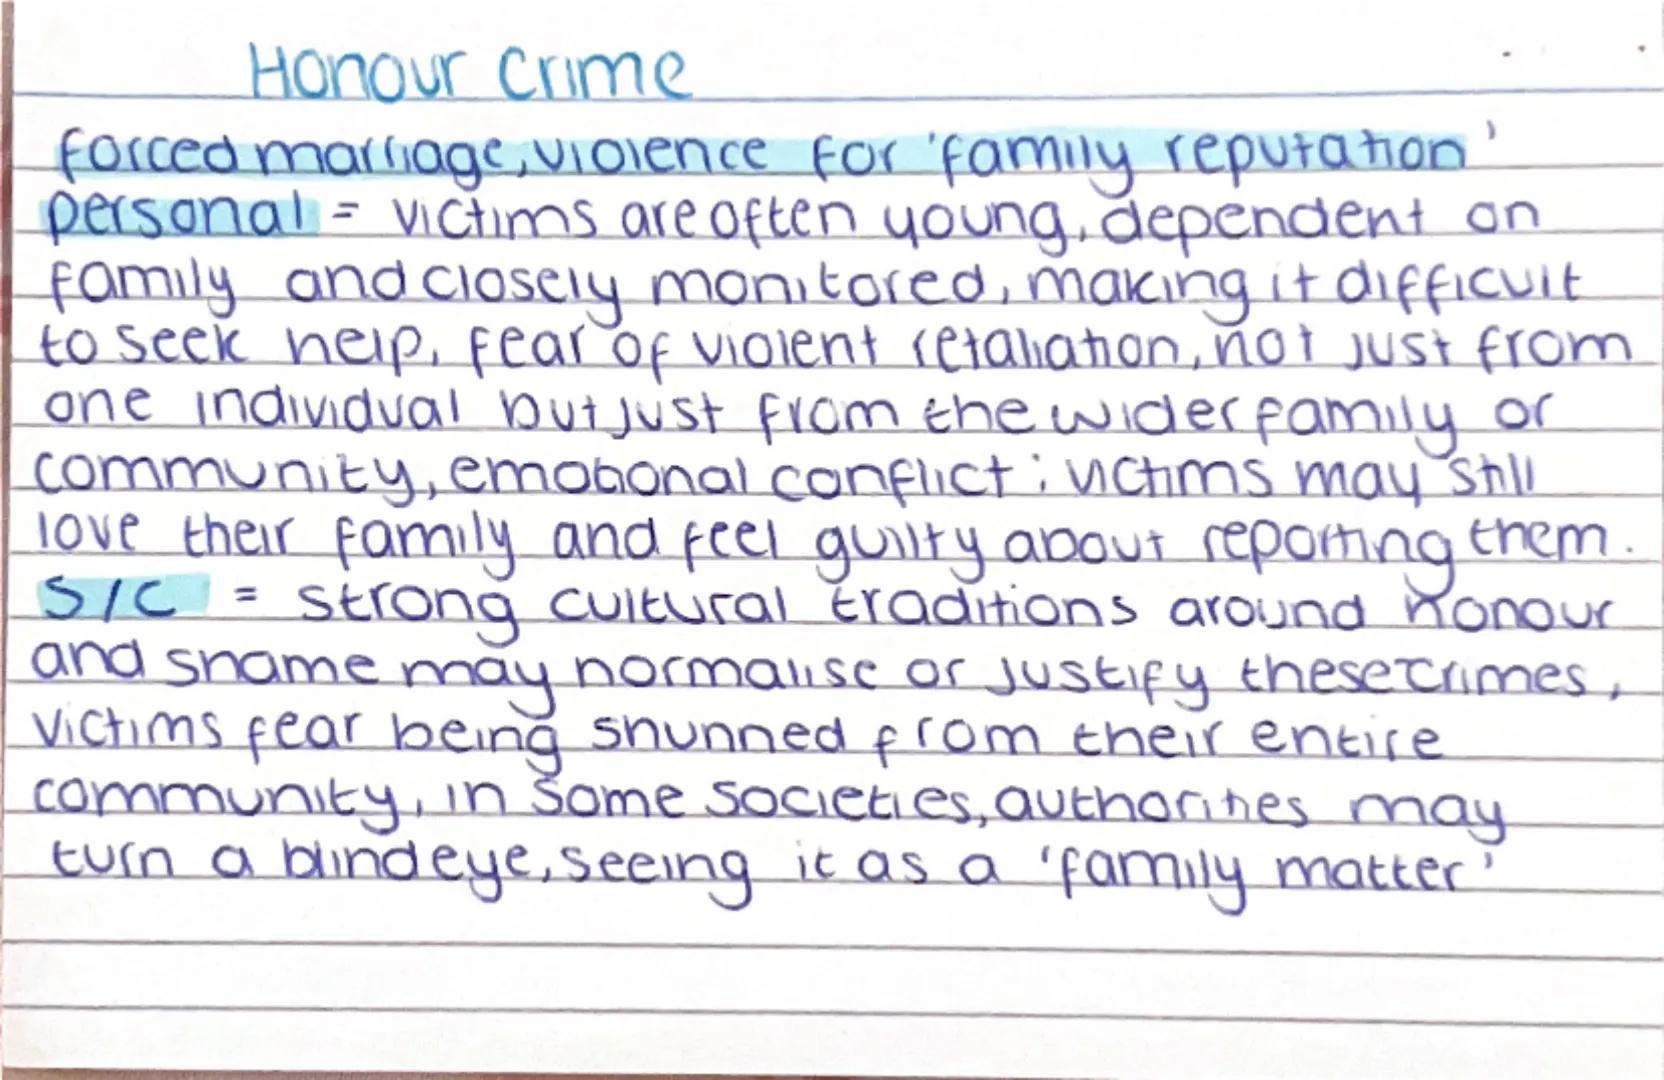 Honour Crime
forced marriage, violence for 'family reputation'
personal = victims are often young, dependent on
family and closely monitored, making it difficult
to seek help, fear of violent retaliation, not just from
one individual but just from the wider family or
community, emotional conflict: victims may still
love their family and feel guilty about reporting them.
S/C = strong cultural traditions around honour
and shame may normalise or justify these crimes,
victims fear being shunned from their entire
community, in some societies, authorities may
turn a blind eye, seeing it as a 'family matter'